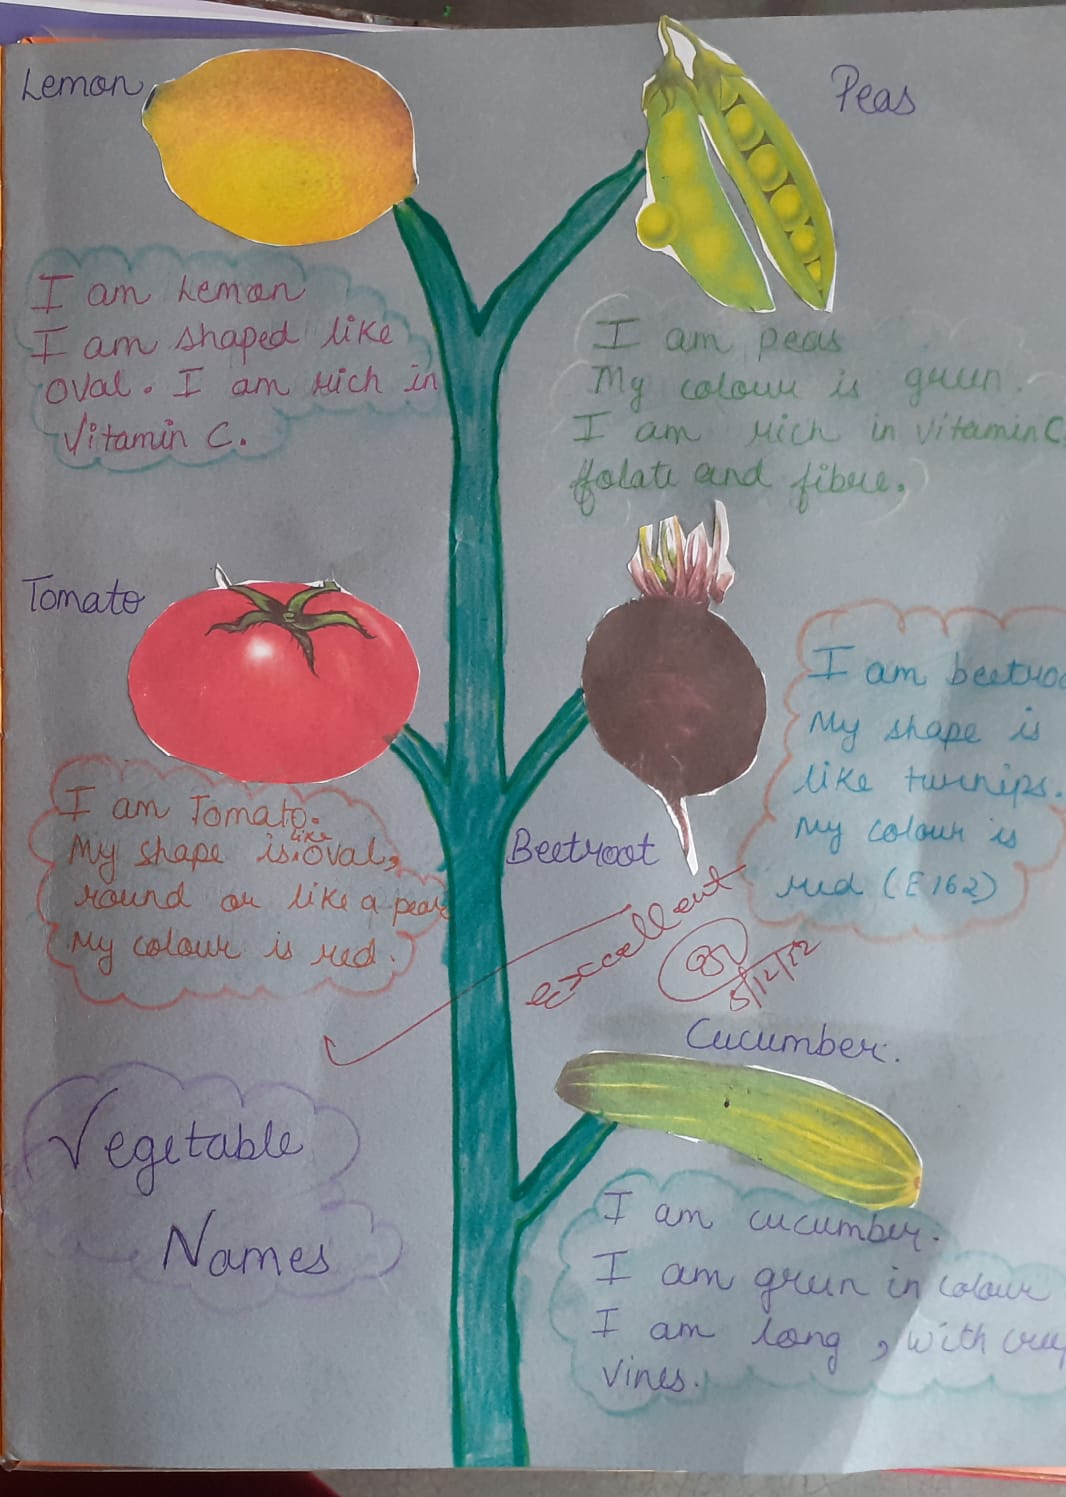 Lemon
Peas
I am Lemon
I am shaped like
oval. I am rich in
Vitamin C.
I am peas
My colour is green.
I am rich in vitamin C
folate and fibre.
Tomato
I am beetroo
My shape is
like turnips.
My colour is
red (E162)
I am Tomato.
My shape is like oval,
round or like a pear
My colour is red.
Beetroot
Excellent
5/12/22
Cucumber.
Vegetable
Names
I am cucumber.
I am green in colour
I am long, with
vines.